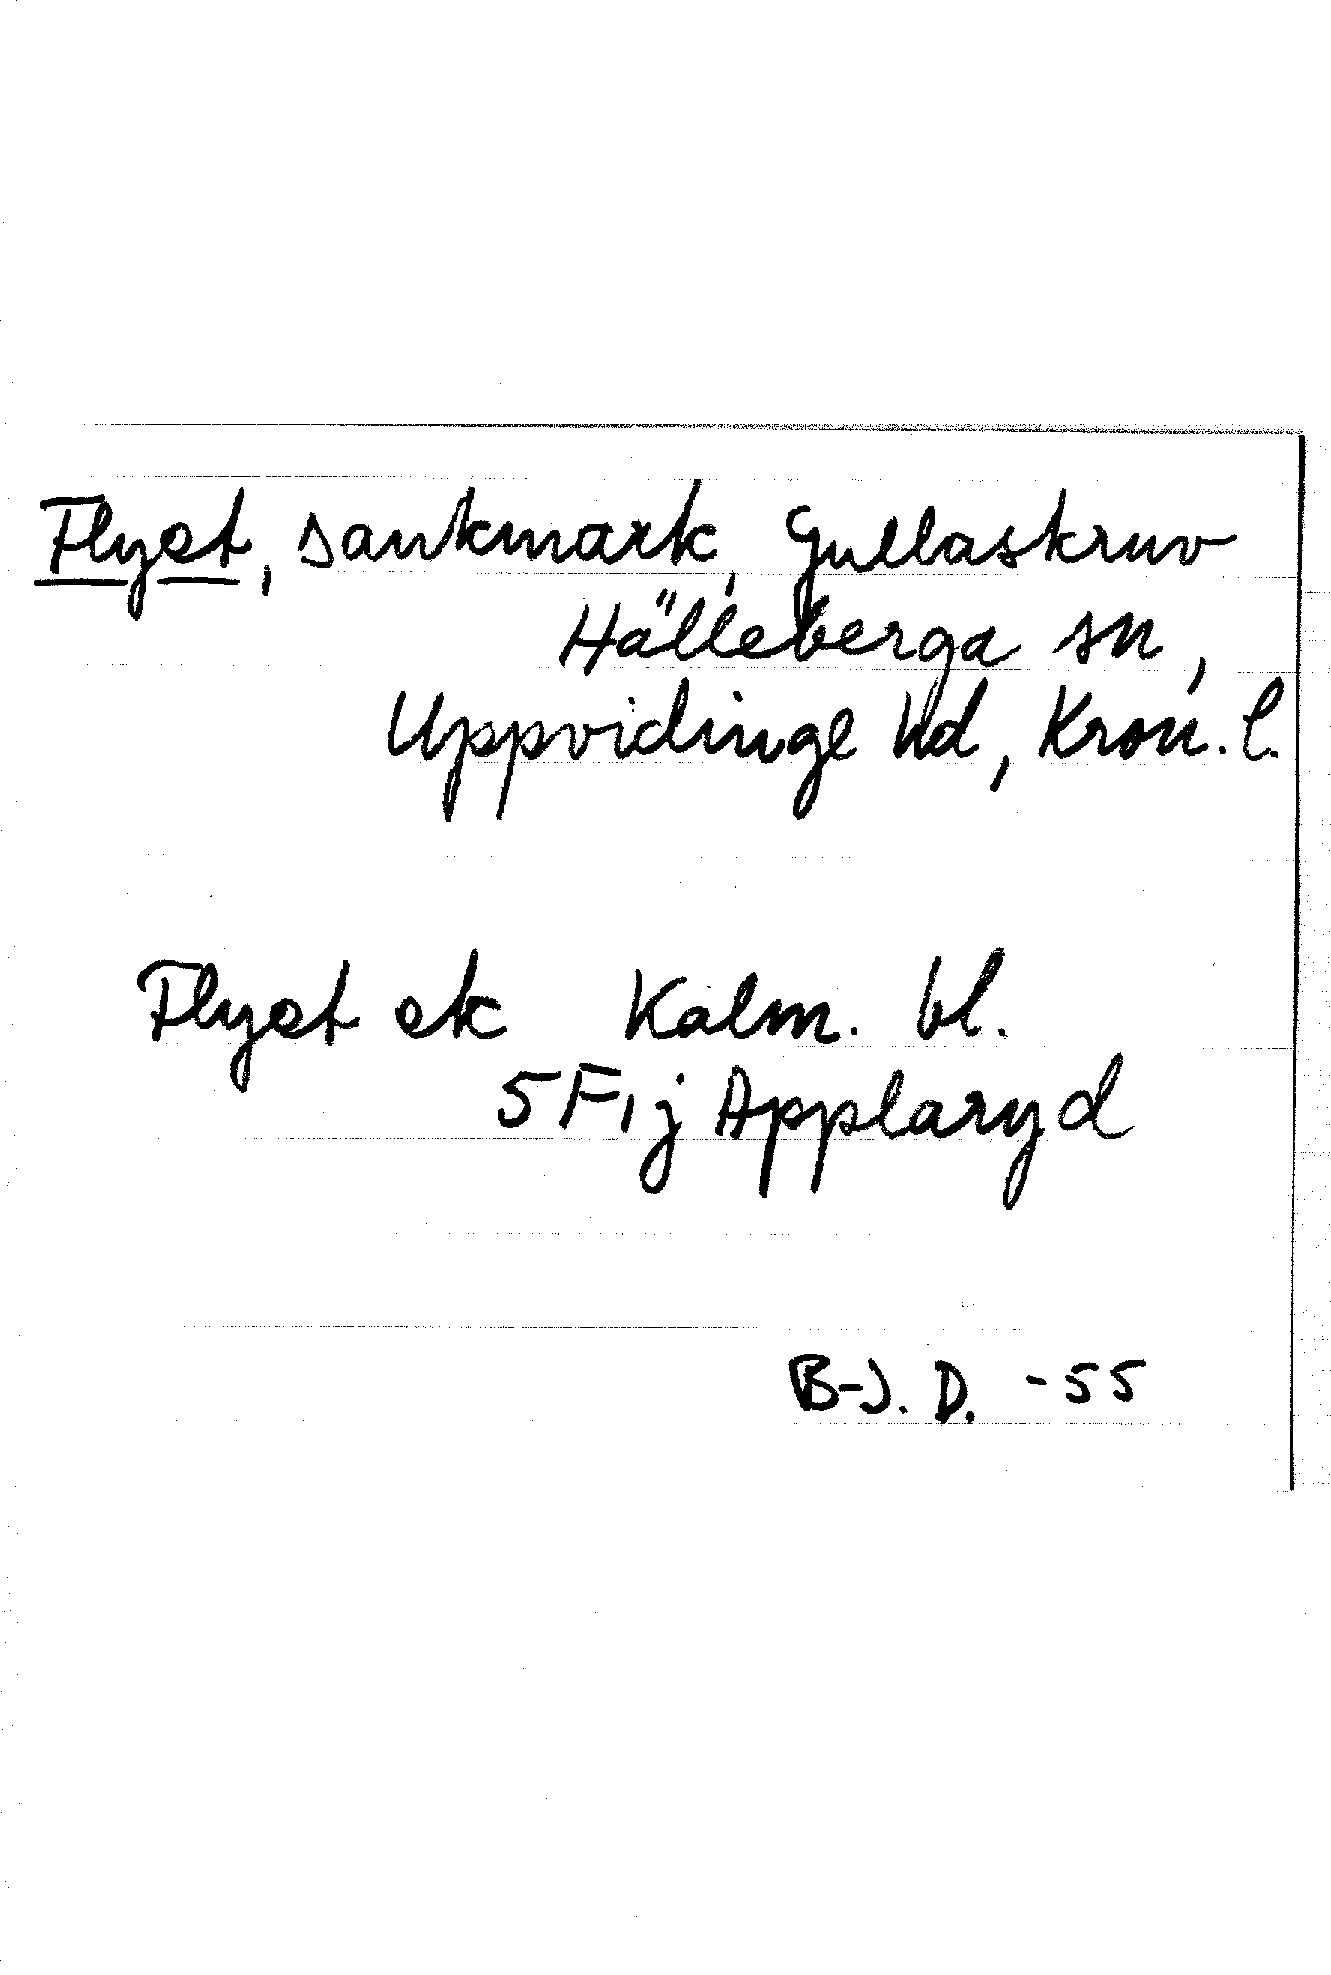 Flyet, sankmark, Gullaskruv
Hälleberga sn,
Uppvidinge hd, Kron. l.
Flyet ek Kalm. bl.
5F1j Applaryd
B-J. D. -55